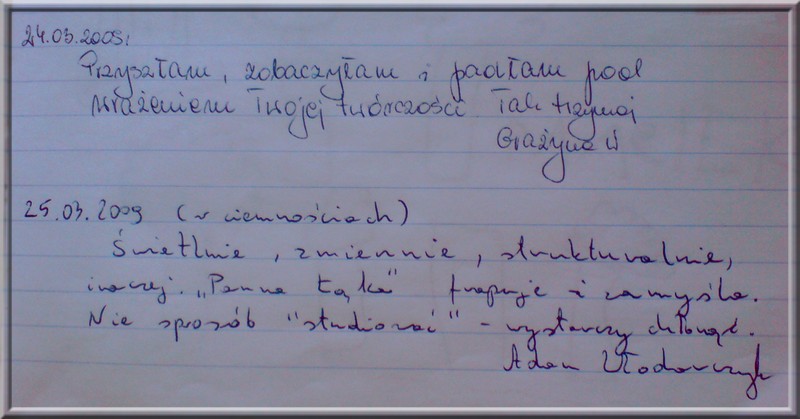 24.03.2009r
Przyszłam, zobaczyłam i padłam pod
wrażeniem Twojej twórczości Tak trzymaj
Grażyna W
25.03.2009 (w ciemnościach)
Świetlnie, zmiennie, strukturalnie,
inaczej. „Panna Łąka" frapuje i zamyśla.
Nie sposób "studiować" - wystarczy chłonąć.
Adam Włodarczyk